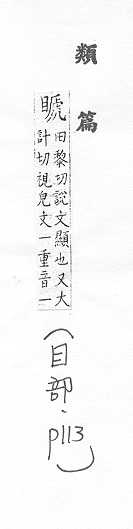 類篇
田黎切說文顯也又大
計切視皃文一重音一
(目部·p113)